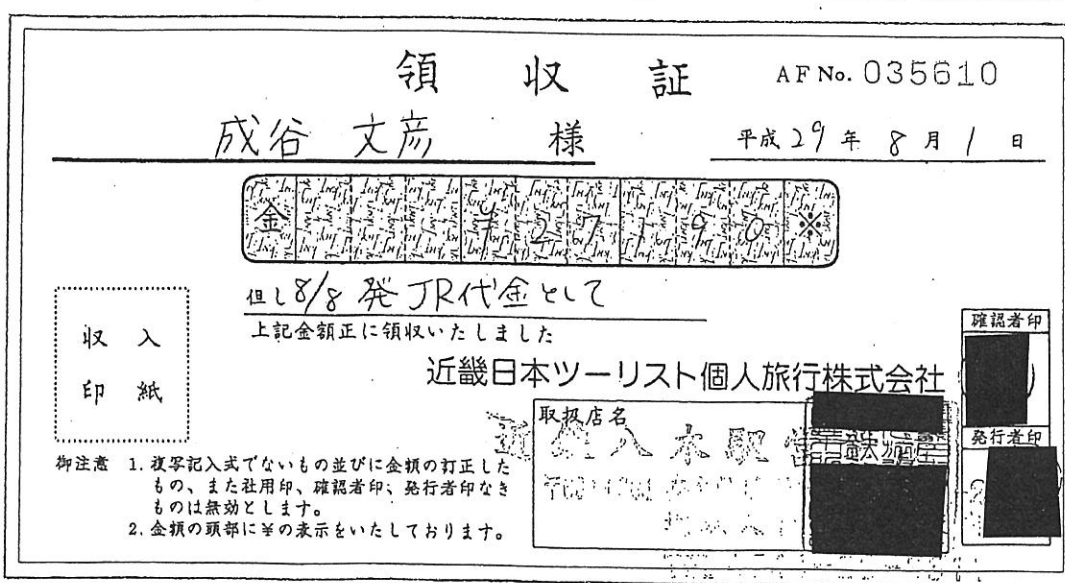 領 収 証 AF No. 035610
成谷 文彦 様 平成 29 年 8 月 1 日
金 ¥27190※
但し 8/8 発 JR代金として
上記金額正に領収いたしました
収 入
印 紙
確認者印
近畿日本ツーリスト個人旅行株式会社
取扱店名
発行者印
御注意 1. 複写記入式でないもの並びに金額の訂正した
もの、また社用印、確認者印、発行者印なき
ものは無効とします。
2. 金額の頭部に¥の表示をいたしております。